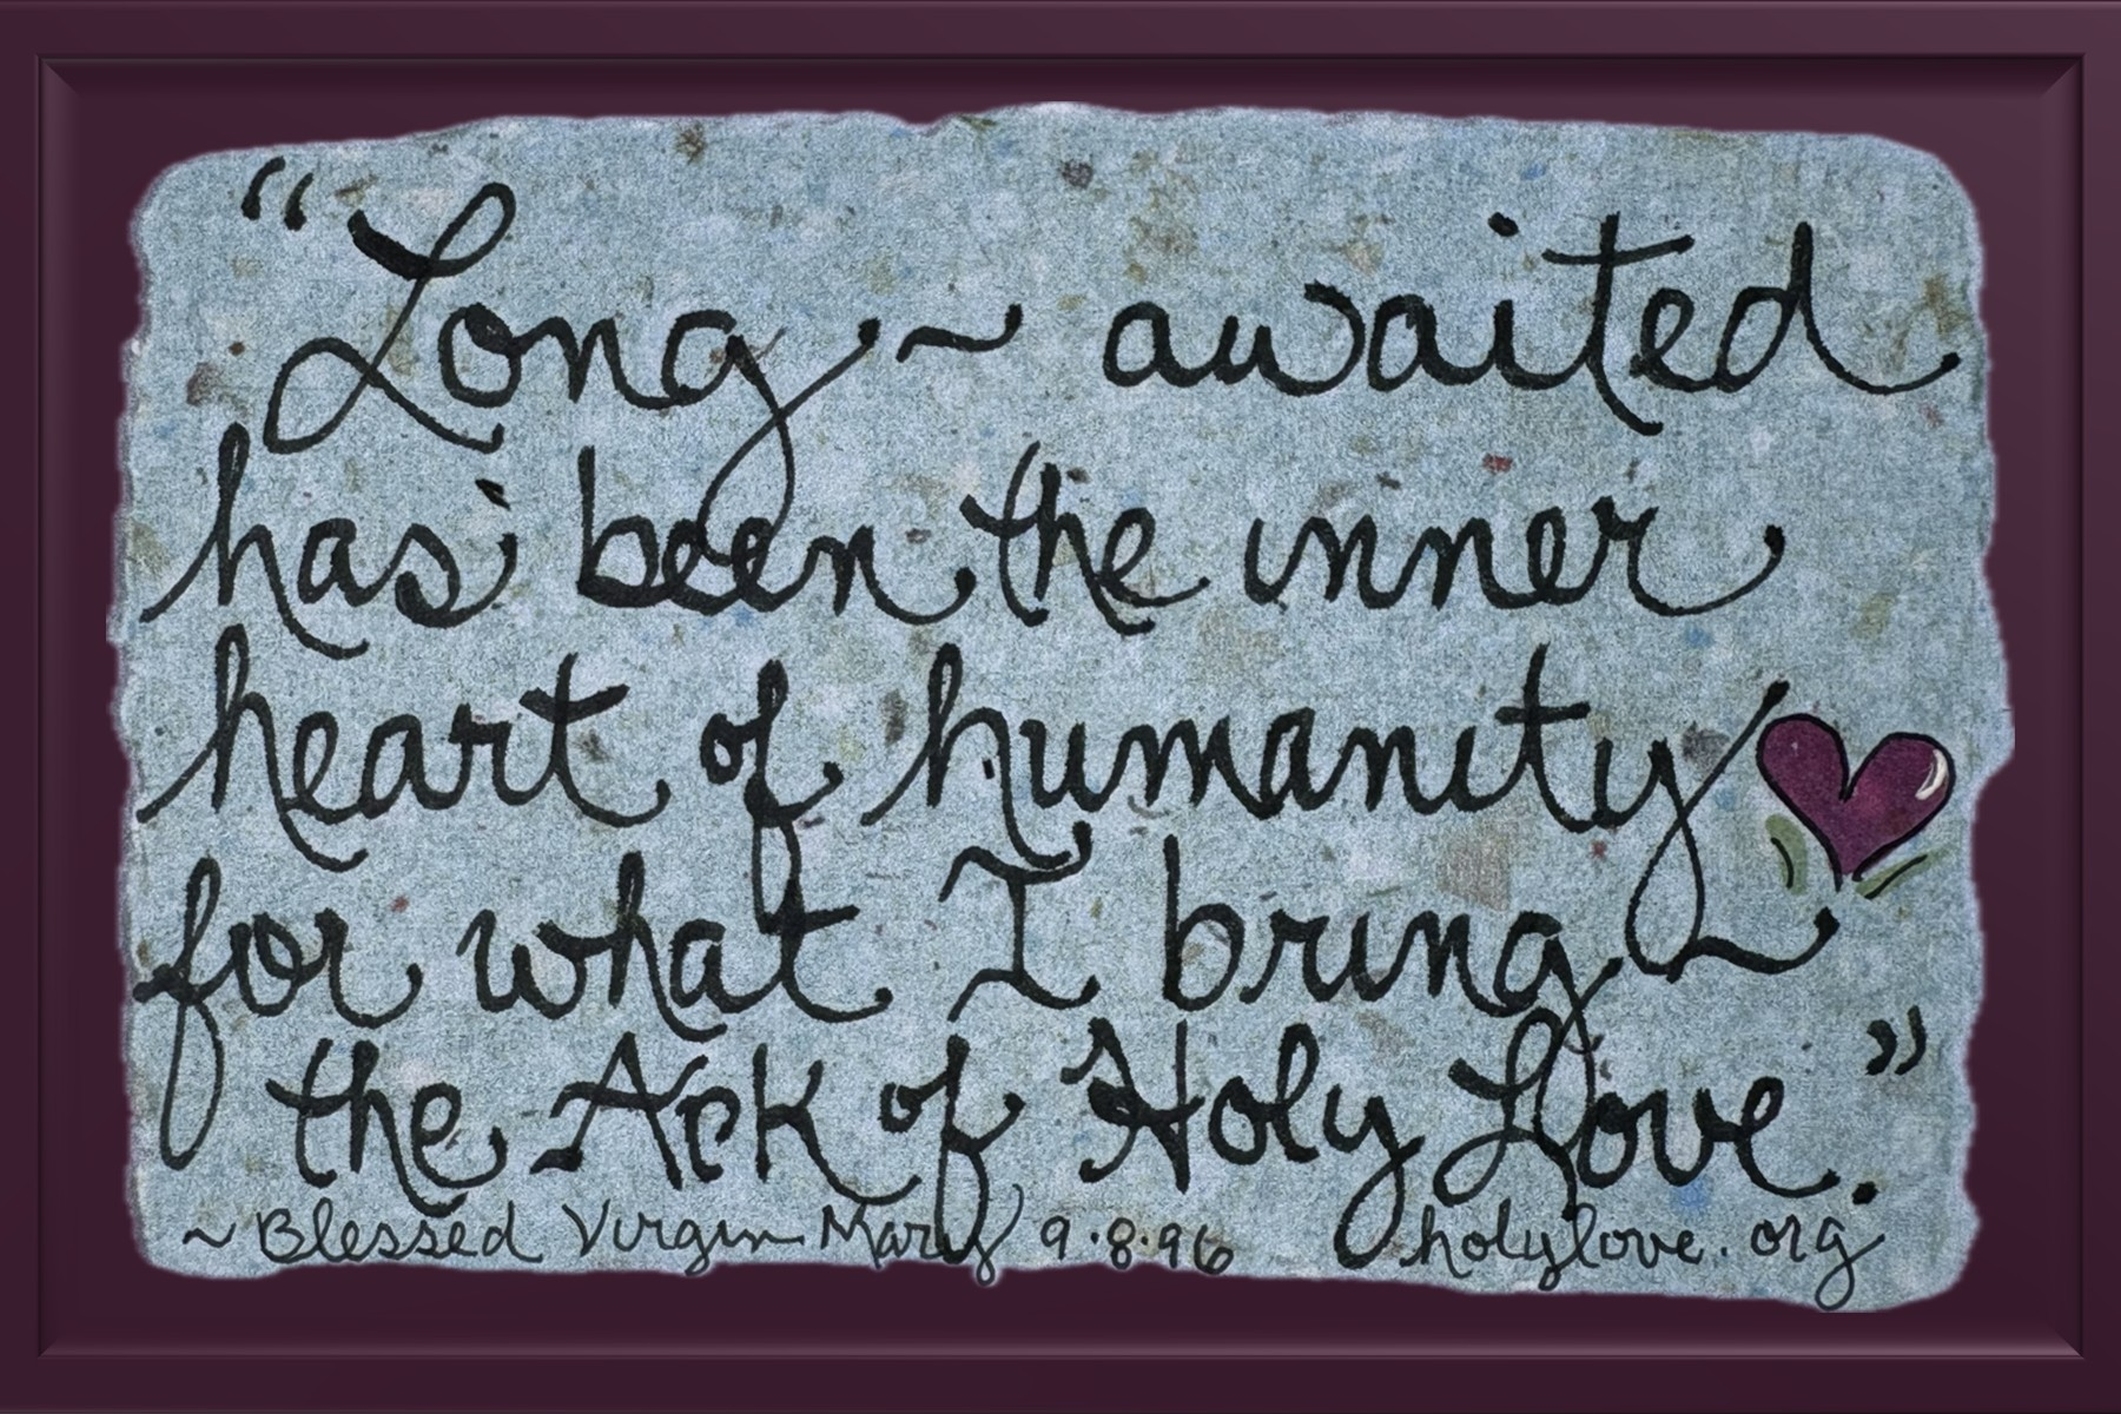 “Long ~ awaited
has been the inner
heart of humanity
for what I bring ~
the Ark of Holy Love.”
~ Blessed Virgin Mary 9.8.96 holylove.org